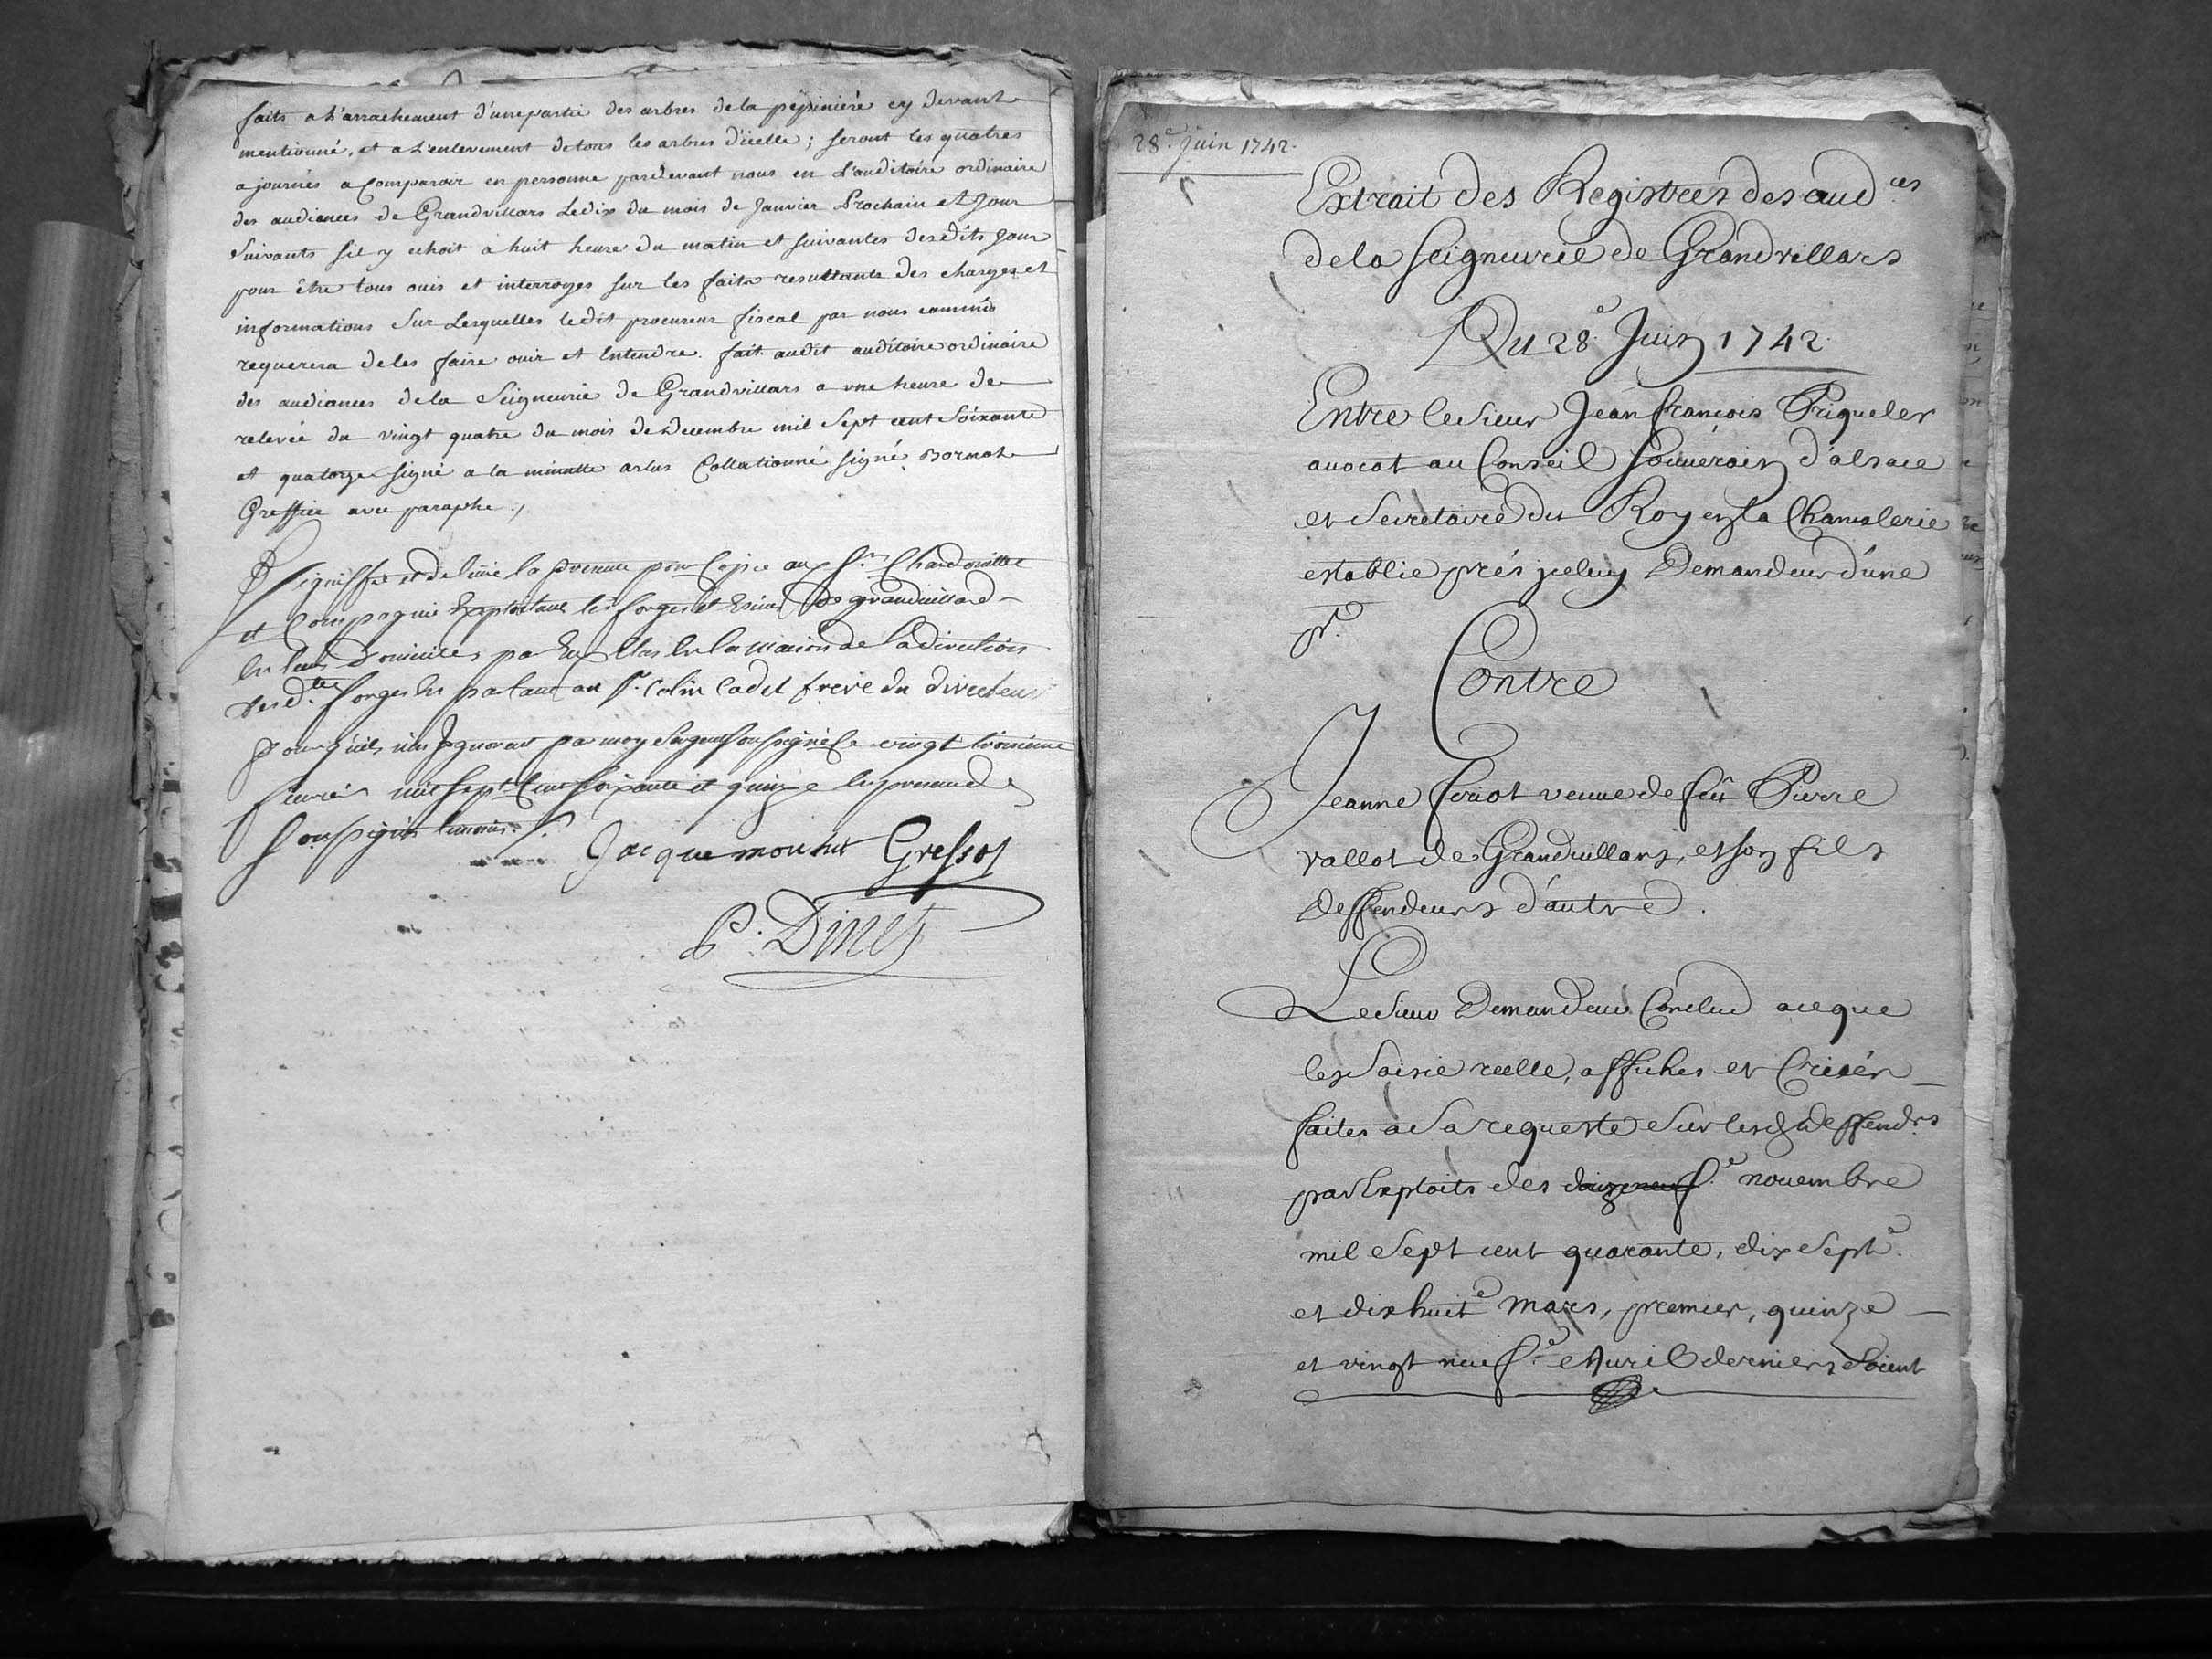 faits a L'arrachement d'une partie des arbres de la pepiniere cy devant
mentionné, et a L'enlevement de tous les arbres d'icelle ; seront les quatres
ajournés a Comparoir en personne pardevant nous en L'auditoire ordinaire
des audiances de Grandvillars Le dix du mois de Janvier Prochain et Jour
Suivants sil y echoit a huit heure du matin et suivantes desdits Jour
pour être tous ouis et interroges sur les faits resultants des charges et
informations Sur Lesquelles ledit procureur fiscal par nous commis
requerera de les faire ouir et Entendre. fait audit auditoire ordinaire
des audiances de la Seigneurie de Grandvillars a une heure de
relevée du vingt quatre du mois de Decembre mil Sept cent Soixante
et quatorze signé a la minutte Collationné signé Bornot
Greffier avec paraphe ./.
Signiffié et delivré la presente pour Copie au Sr. Chardoillet
et Compagnie Exploitant les forges et Usines de grandvillard
en leurs Domicile en la Maison de la direction
desd.tes forges En parlant au Sr. Colin Cadet frere du directeur
pour qu'ils n'en Ignorent par moy Sergent soussigné le vingt troisieme
fevrier mil Sept Cent Soixante et quinze En presence des
soussignés temoins ./.
Jacquemont Gressot
P. Diney
28e. Juin 1742.
Extrait des Registres des aud.ces
de la seigneurie de Grandvillars
Du 28e. Juin 1742.
Entre le Sieur Jean françois Priqueler
auocat au Conseil Souuerain d'alsace
et Secretaire du Roy en la Chanslerie
establie prés jceluy Demandeur d'une
pt.
Contre
Jeanne feriot veuue de feû Pierre
vallot de Granduillars, et son fils
Deffendeurs d'autre.
Le Sieur Demandeur Conclud a ce que
les Saisie reelle, affiches et Criées
faites a Sa requeste Sur lesd. deffendrs
par Exploits des novembre
mil Sept cent quarante, dix Septe.
et dix huite mars, premier, quinze
et vingt neufe. Avril derniers Soient